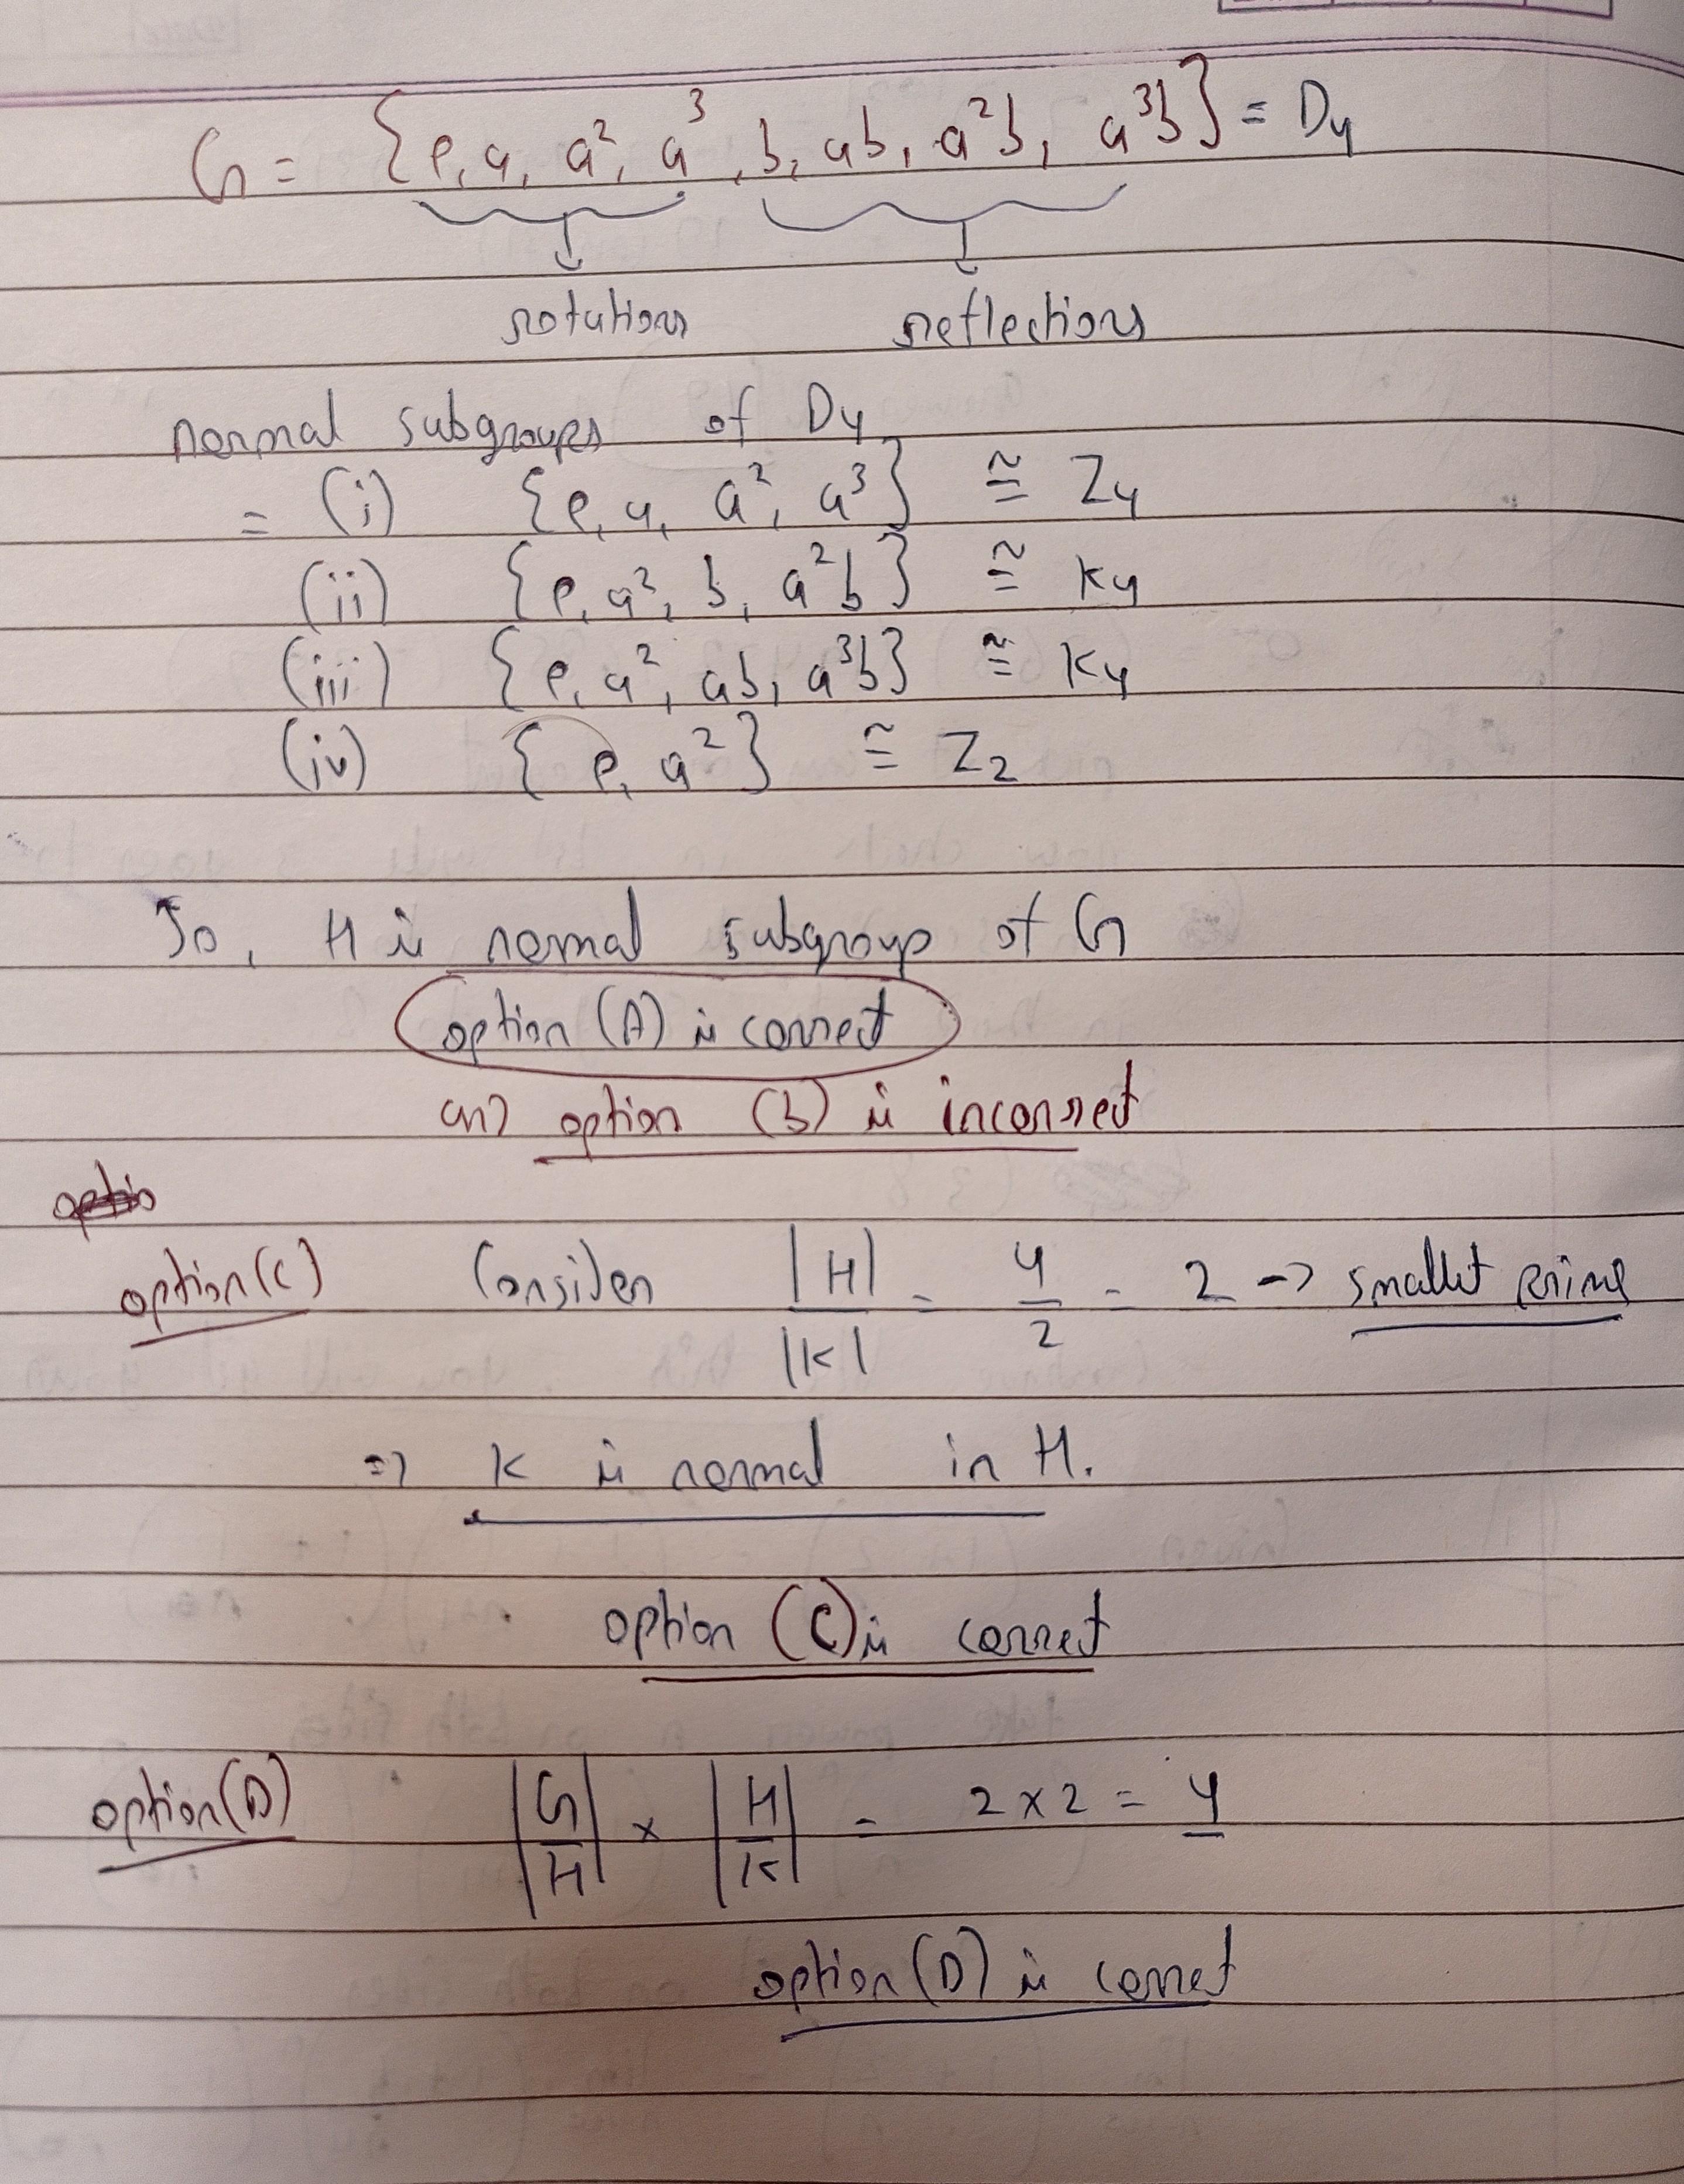 G = {e, a, a², a³, b, ab, a²b, a³b} = D₄
rotations reflections
normal subgroups of D₄
= (i) {e, a, a², a³} ≅ Z₄
(ii) {e, a², b, a²b} ≅ K₄
(iii) {e, a², ab, a³b} ≅ K₄
(iv) {e, a²} ≅ Z₂
So, H is normal subgroup of G
option (A) is correct
and option (b) is incorrect
option(C) Consider |H|/|K| = 4/2 = 2 → smallest prime
⇒ K is normal in H.
option (C) is correct
option(D) |G/H| × |H/K| = 2 × 2 = 4
option (D) is correct